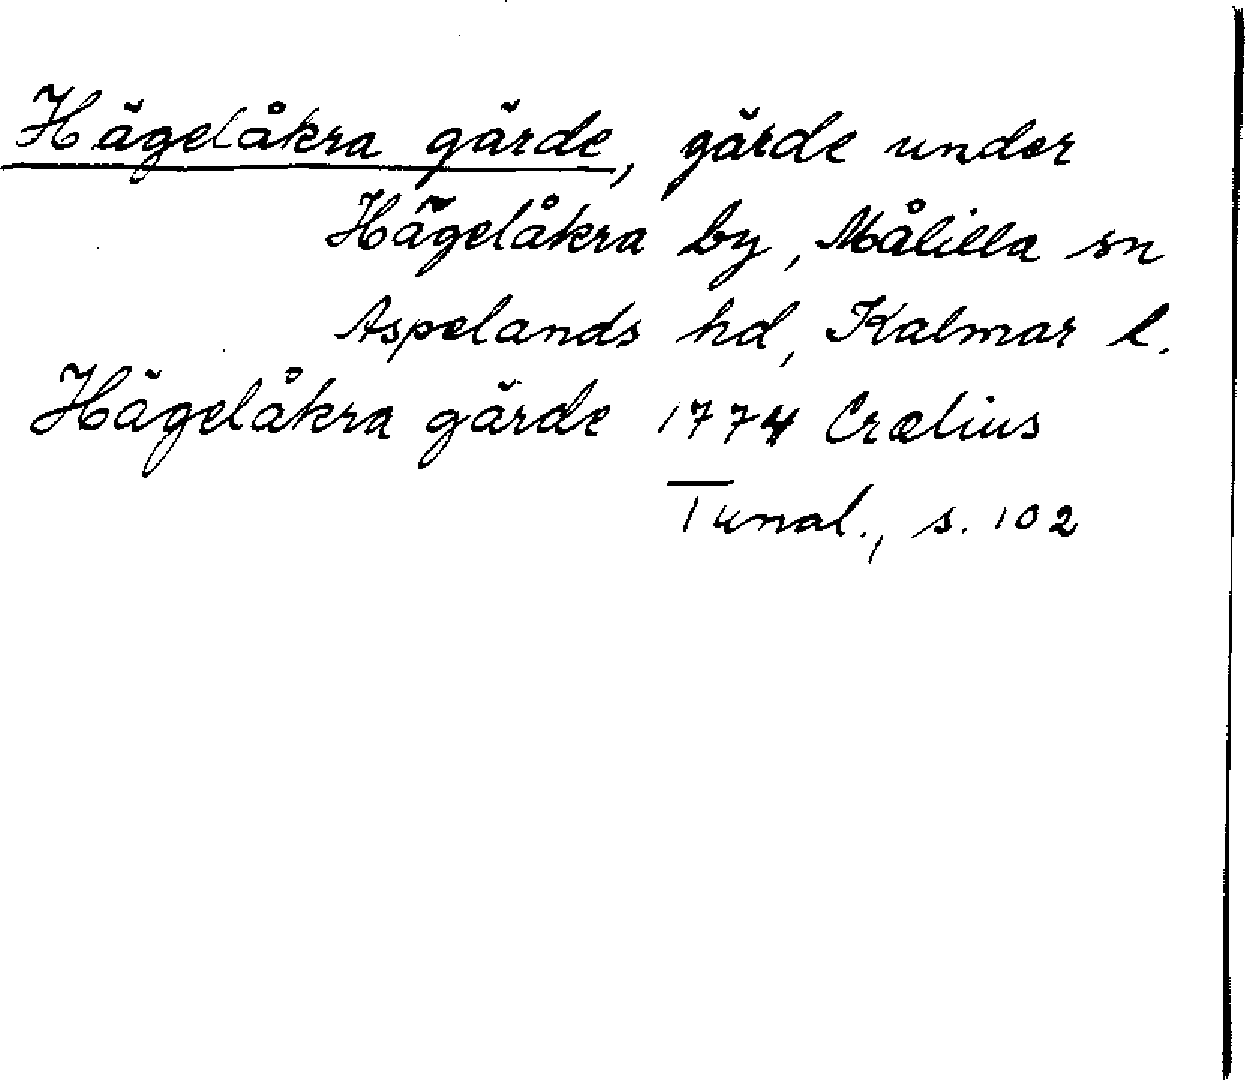 Hägelåkra gärde, gärde under
Hägelåkra by, Målilla sn
Aspelands hd, Kalmar l.
Hägelåkra gärde 1774 Crælius
Tunal., s. 102